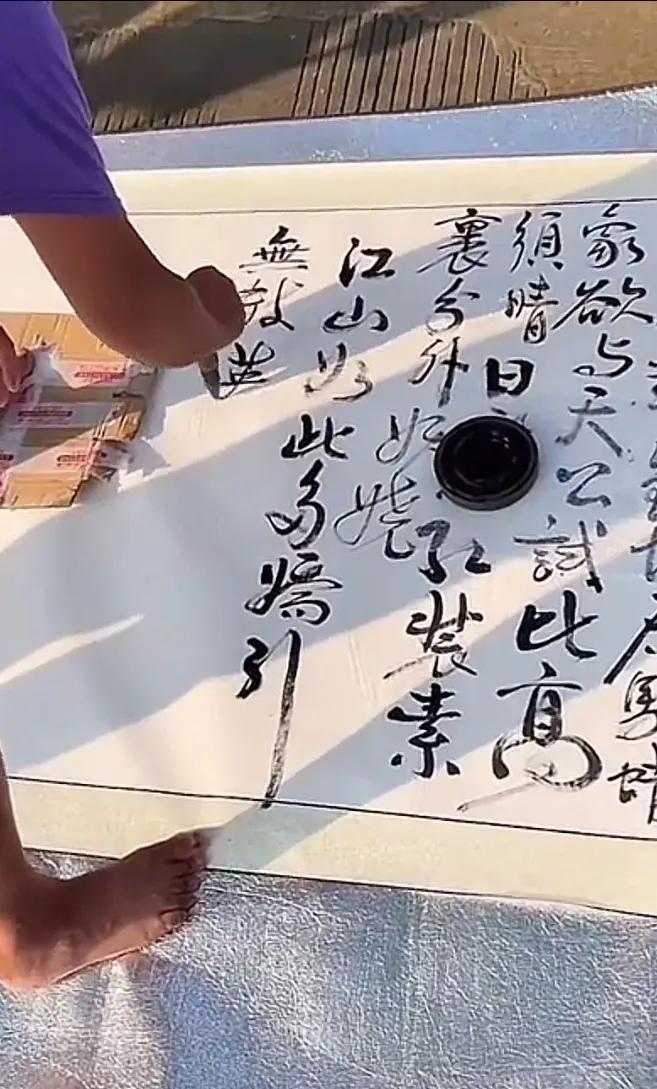 象欲与天公試比高
須晴日紅裝素
裹分外妖嬈
江山如此多嬌引
無数英